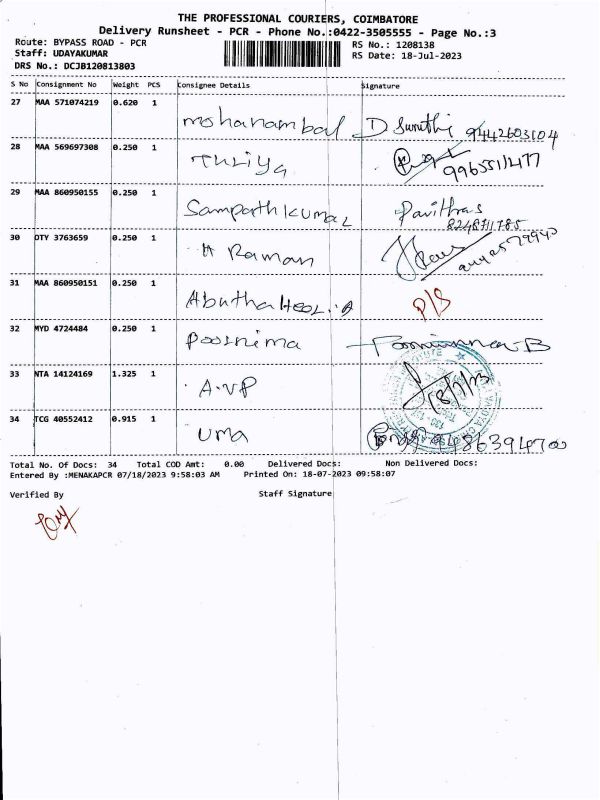 THE PROFESSIONAL COURIERS, COIMBATORE
Delivery Runsheet - PCR - Phone No.:0422-3505555 - Page No.:3
Route: BYPASS ROAD - PCR RS No.: 1208138
Staff: UDAYAKUMAR RS Date: 18-Jul-2023
DRS No.: DCJB120813803
S No Consignment No Weight PCS Consignee Details Signature
27 MAA 571074219 0.620 1 mohanambal D Sunithi 9442603104
28 MAA 569697308 0.250 1 Thuliya 9965511477
29 MAA 860950155 0.250 1 Sampathkumar Pavithras
8248711785
30 OTY 3763659 0.250 1 A Raman
31 MAA 860950151 0.250 1 P/S
32 MYD 4724484 0.250 1 Poornima Poornima B
33 NTA 14124169 1.325 1 A.VP 18/7/23
34 TCG 40552412 0.915 1 uma
Total No. Of Docs: 34 Total COD Amt: 0.00 Delivered Docs: Non Delivered Docs:
Entered By :MENAKAPCR 07/18/2023 9:58:03 AM Printed On: 18-07-2023 09:58:07
Verified By Staff Signature